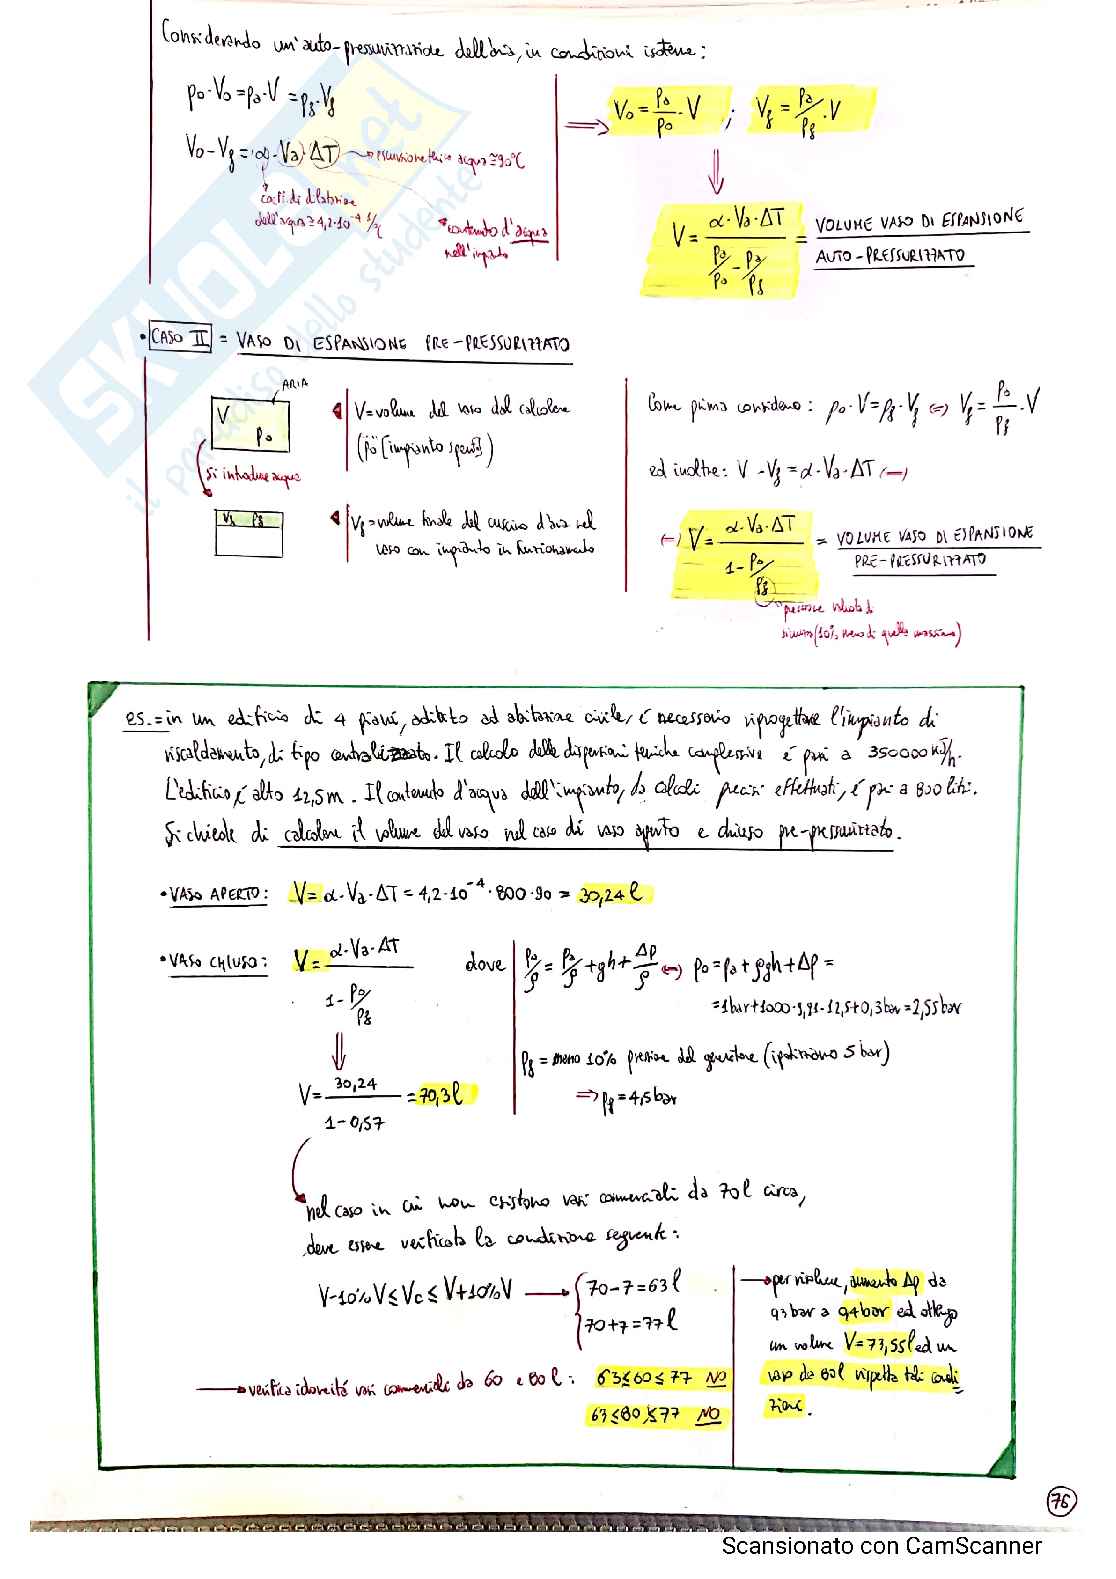 Considerando un'auto-pressurizzazione dell'aria, in condizioni isoterme:
p0·V0=pa·V=pf·Vf
V0-Vf=α·Va·ΔT → escursione termica acqua ≅90°C
coeff. di dilatazione
dell'acqua≅4,2·10⁻⁴ 1/°C
contenuto d'acqua
nell'impianto
⇒ V0=pa/p0·V ; Vf=pa/pf·V
V=α·Va·ΔT/(pa/p0-pa/pf) = VOLUME VASO DI ESPANSIONE
AUTO-PRESSURIZZATO
• CASO II = VASO DI ESPANSIONE PRE-PRESSURIZZATO
ARIA
V
p0
V=volume del vaso dal calcolare
(p0 [impianto spento])
si introduce acqua
Vf pf
Vf=volume finale del cuscino d'aria nel
vaso con impianto in funzionamento
Come prima considero: p0·V=pf·Vf ⇔ Vf=p0/pf·V
ed inoltre: V-Vf=α·Va·ΔT ⇔
⇔ V=α·Va·ΔT/(1-p0/pf) = VOLUME VASO DI ESPANSIONE
PRE-PRESSURIZZATO
pressione valvola di
sicurezza (10% meno di quella massima)
es.=in un edificio di 4 piani, adibito ad abitazione civile, è necessario riprogettare l'impianto di
riscaldamento, di tipo centralizzato. Il calcolo delle dispersioni termiche complessive è pari a 350000 KJ/h.
L'edificio è alto 12,5m. Il contenuto d'acqua dell'impianto, da calcoli precisi effettuati, è pari a 800 litri.
Si chiede di calcolare il volume del vaso nel caso di vaso aperto e chiuso pre-pressurizzato.
• VASO APERTO: V=α·Va·ΔT=4,2·10⁻⁴·800·90=30,24 l
• VASO CHIUSO: V=α·Va·ΔT/(1-p0/pf) dove p0/ρ=pa/ρ+gh+Δp/ρ ⇔ p0=pa+ρgh+Δp=
=1bar+1000·9,81·12,5+0,3bar=2,55bar
pf=meno 10% pressione del generatore (ipotizziamo 5 bar)
⇒ pf=4,5bar
V=30,24/(1-0,57)=70,3 l
nel caso in cui non esistono vasi commerciali da 70l circa,
deve essere verificata la condizione seguente:
V-10%V≤Vc≤V+10%V → {70-7=63 l
70+7=77 l
→ verifica idoneità vasi commerciali da 60 e 80 l: 63≤60≤77 NO
63≤80≤77 NO
→ per risolvere, aumento Δp da
0,3bar a 0,4bar ed ottengo
un volume V=73,55l ed un
vaso da 80l rispetta tali condi-
zioni.
76
SKUOLA.net
il paradiso dello studente
Scansionato con CamScanner